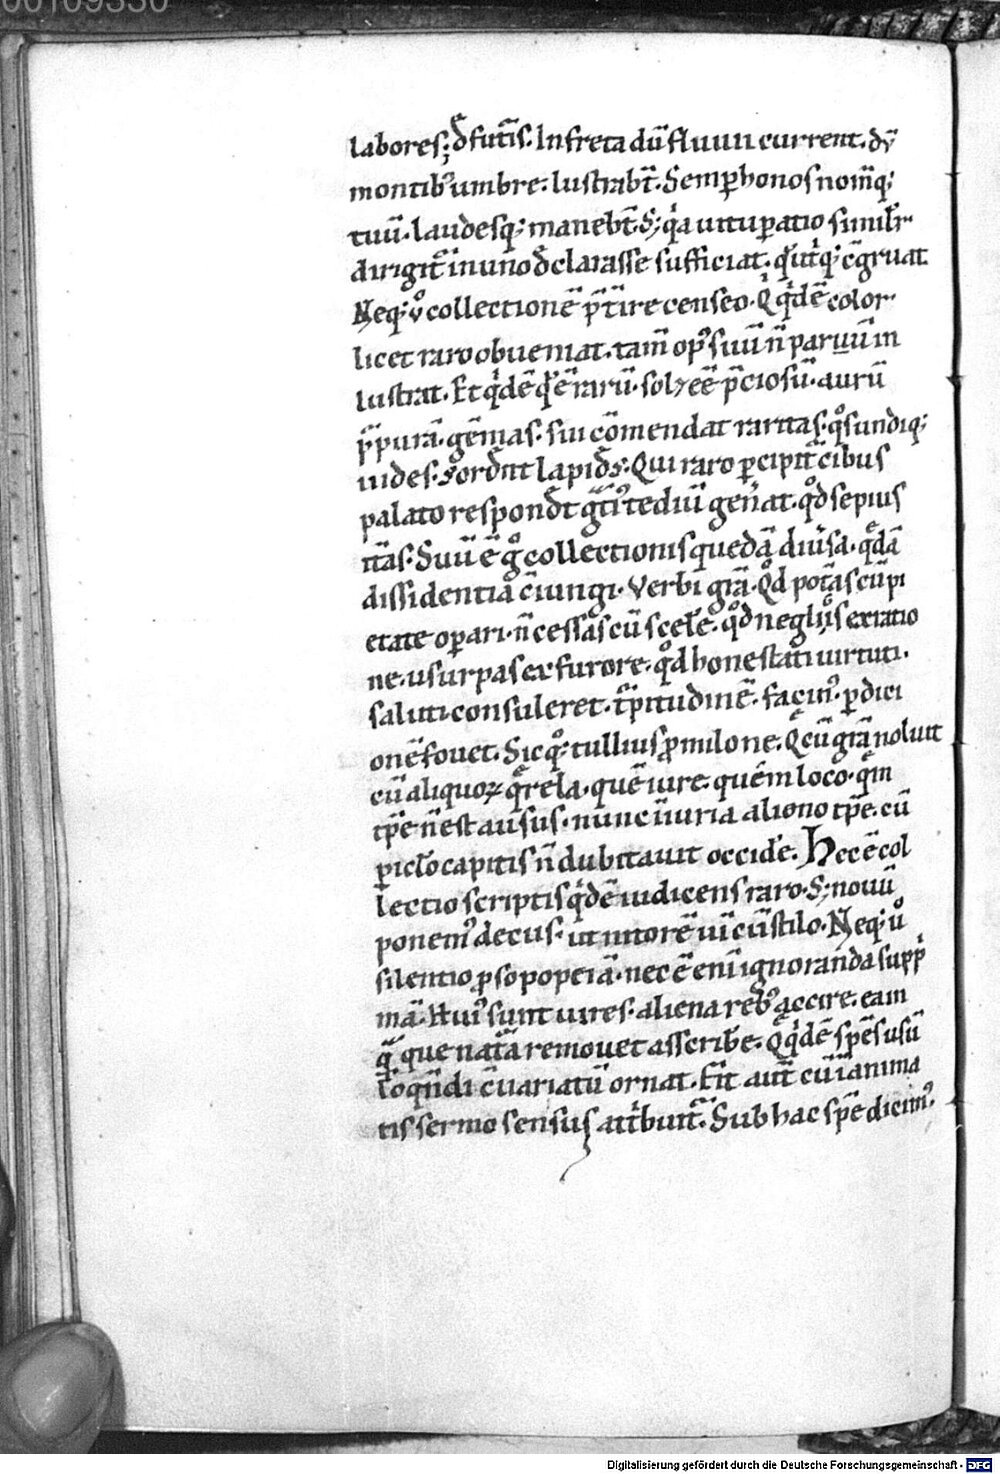 00109330
labores; d̄ futīs. In freta dū fluuii current. dū
montib; umbre. lustrabt̄. Semꝑ honos nom̄q;
tuū. laudesq; manebt̄. S; qͥa uituꝑatio simil̄r
dirigit̄ in uno d̄clarasse sufficiat. qͥ utͥq; cͦgruat
Neq; ůͦ collectionē p̄t̄ire censeo. Qͥ qͥdē color.
licet raro obueniat. tam̄ opꝰ suū n̄ paruū in
lustrat. Et qͥdē qͥ ē rarū. sol; eē p̄ciosū. aurū
p̄purā. gēmas. sui cōmendat raritas. qͦs undiq;
uides. sord̄nt lapid̄s. Qui raro ꝑcipit̄ cibus
palato respond̄t gͣtiꝰ. tediū gen̄at. qͦd sepius
itās. Suū ē gͦ collectionis quedā diu̓sa. qͣdā
dissidentia c̄iungi. Verbi grā. Qͦd potas cū pͥ
etate oꝑari. n̄ cessas cū scel̓e. qͦd negl̄is ex ratio
ne. usurpas ex furore. qͦd honestati uirtuti.
saluti consuleret. t̓pitudinē. facinꝰ. ꝑdici
onē fouet. Sic qͦq; tullius ꝓ milone. Qͤ cū grā noluit
cū aliquoꝝ qͤrela. quē iure. quē in loco. qͤm
tp̄e n̄ est ausus. nunc iniuria alieno tp̄e. cū
ꝑiclo capitis n̄ dubitauit occide̓. Hec ē col
lectio scriptis qͥdē iudicens raro. S; nouū
ponemꝰ decus. ut nitorē uicīs stilo. Neq; ůͦ
silentio ꝓsopopeiā. nec ē enī ignoranda supp̄
mā. Huiꝰ sunt uires. aliena rebꝰ accire. eam
qͣ que natā remouet asscribe̓. Qͤ qͥdē spēs usū
loqn̄di c̄uariatū ornat. Fit aut̄ cū īanima
tis sermo sensus attͥbuit̄. Sub hac spē dicimꝰ
Digitalisierung gefördert durch die Deutsche Forschungsgemeinschaft - DFG